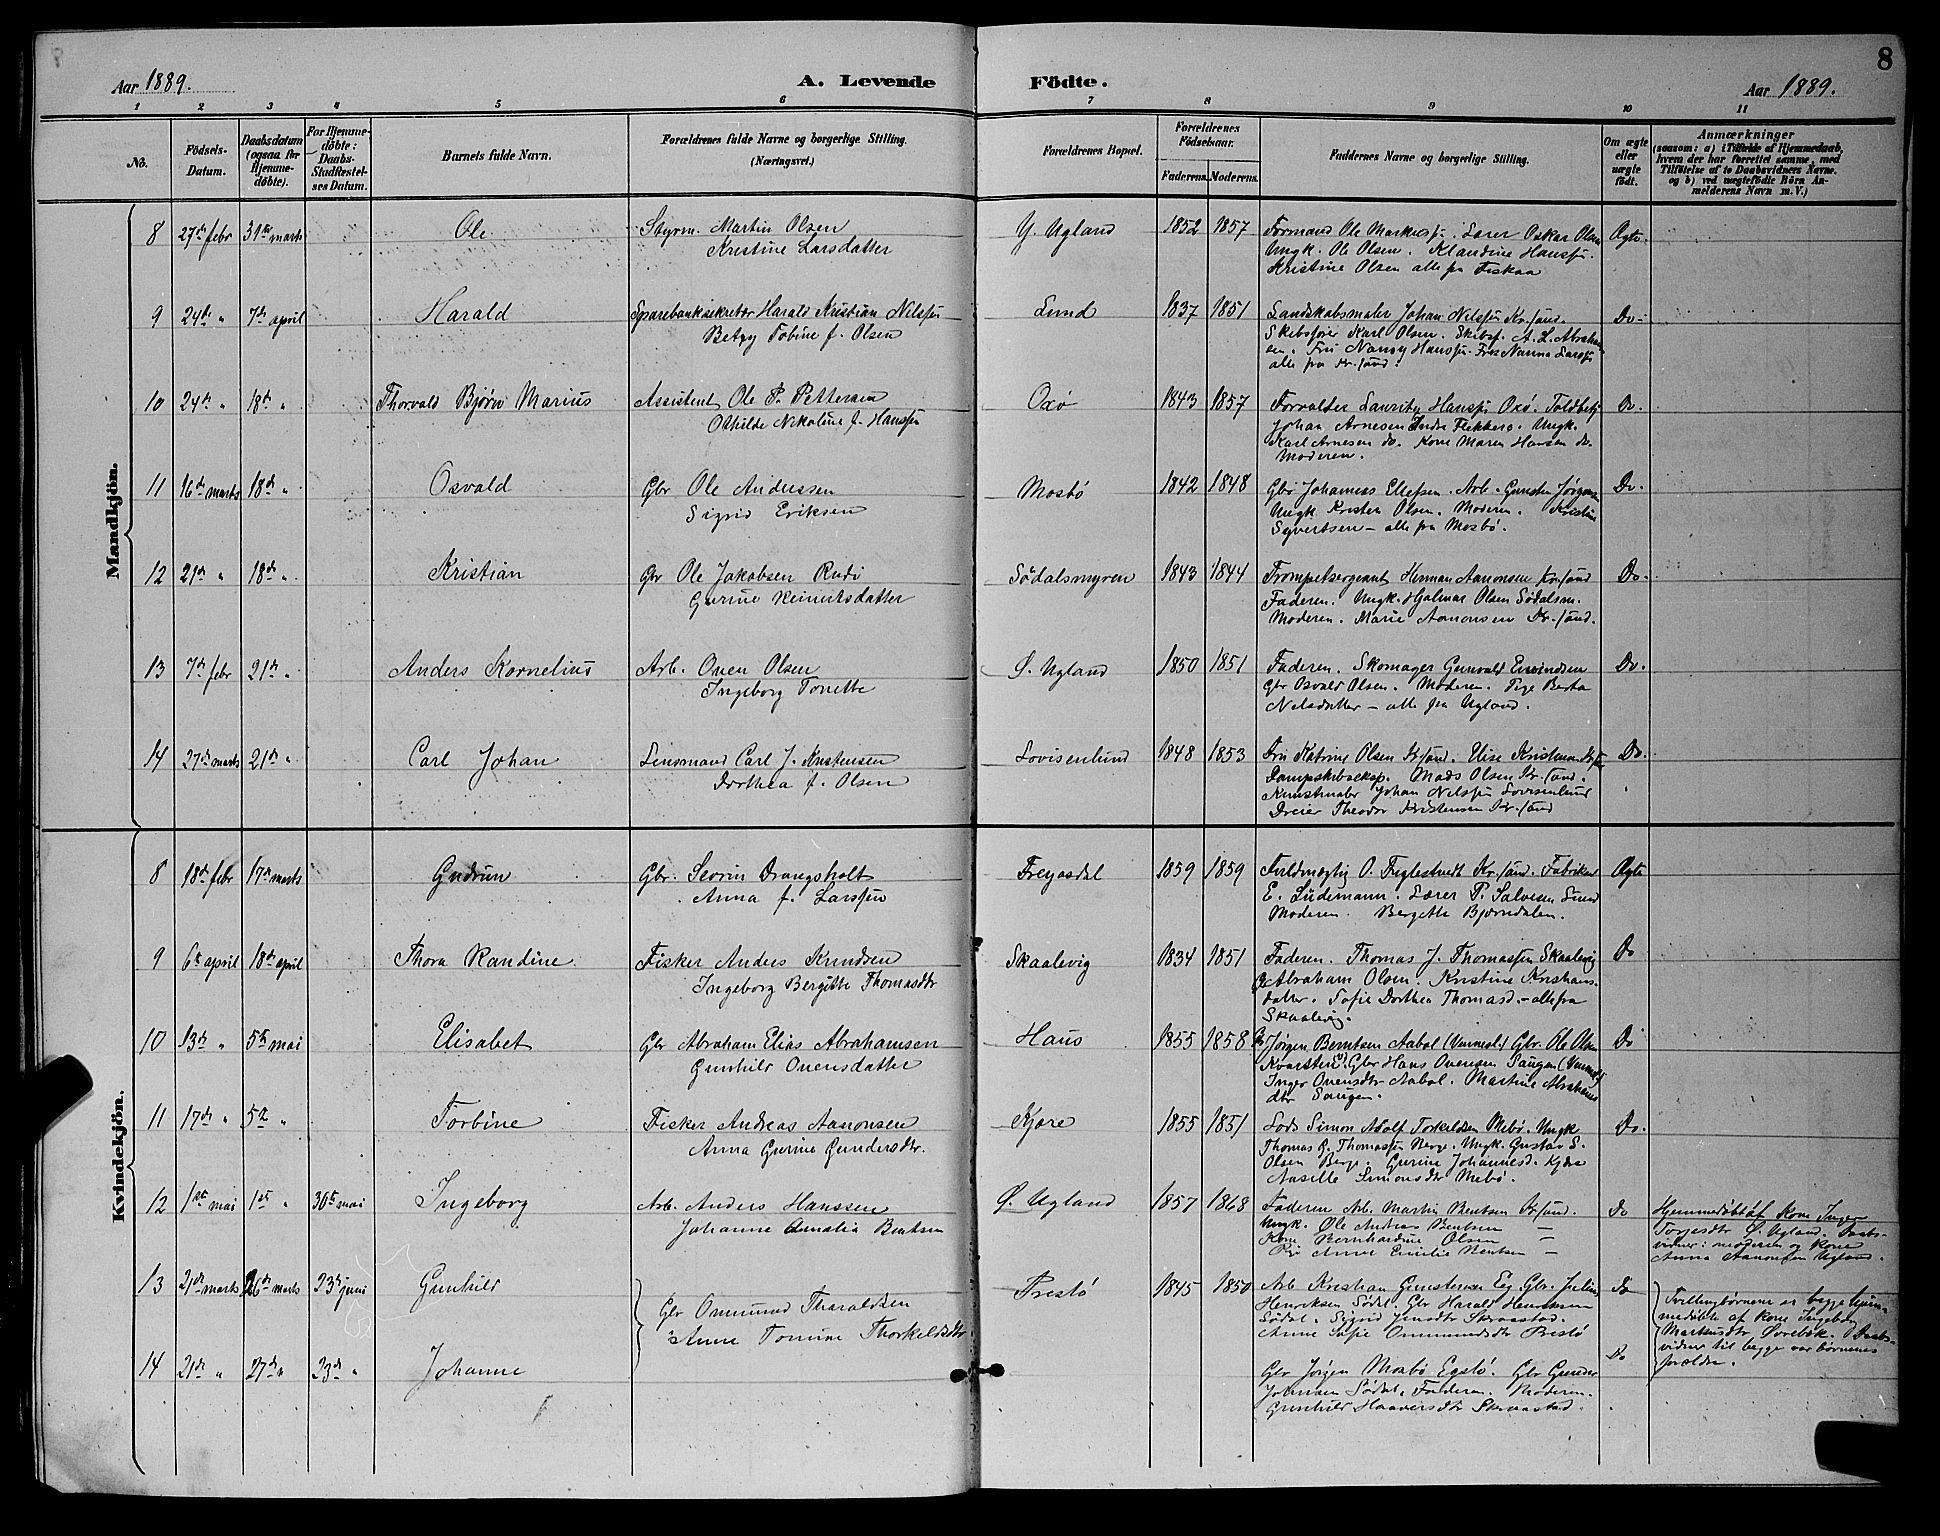 8
Aar 1889.
A. Levende Födte.
Aar 1889.
1 2 3 4 5 6 7 8 9 10 11
No.
Födsels-Datum.
Daabsdatum (ogsaa for Hjemmedöbte).
For Hjemmedöbte: Daabs-Stadfæstelses Datum.
Barnets fulde Navn.
Forældrenes fulde Navne og borgerlige Stilling. (Næringsvei.)
Forældrenes Bopæl.
Forældrenes Födselsaar.
Faderens. Moderens.
Faddernes Navne og borgerlige Stilling.
Om ægte eller uægte födt.
Anmærkninger
(saasom: a) i Tilfælde af Hjemmedaab, hvem der har forrettet samme, med Tilföielse af to Daabsvidners Navne, og b) ved uægtefödte Börn Anmelderens Navn m. V.)
Mandkjön.
8 27de febr 31te marts Ole Styrm. Martin Olsen Y. Ugland 1852 1857 Formand Ole Markussen. Lærer Oskar Olsen Ægte.
Kristine Larsdatter
Ungk. Ole Olsen. Klandine Hanssen.
Kristine Olsen alle fra Fiskaa
9 24de " 7de april Harald Sparebanksekretær Harald Kristian Nilssen Lund 1837 1851 Landskabsmaler Johan Nilssen Kr.sand. Do.
Betzy Tobine f. Olsen
Skibsfører Karl Olsen. Skibsf. A. L. Abraham
sen. Fru Nancy Hanssen. Frk Nanna Larssen
alle fra Kr.sand.
10 24de " 18de " Thorvald Bjørn Marius Assistent Ole P. Pettersen Oxö 1843 1857 Forvalter Lauritz Hanssen Oxö. Toldbetj. Do.
Othilde Nikoline f. Hanssen
Johan Arnesen Indre Flekkerø. Ungk.
Karl Arnesen do. Kone Maren Hansen do.
Moderen.
11 16de marts 18de " Osvald Gbr Ole Anderssen Mosbö 1842 1848 Gbr Johannes Ellefsen. Arb. Gunsten Jørgensen Do.
Sigrid Eriksen
Ungk Kristen Olsen. Moderen. Kristine
Syvertsen - alle fra Mosbö.
12 21de " 18de " Kristian Gbr Ole Jakobsen Rudi Södalsmyren 1843 1844 Trompetsergeant Herman Aanonsen Kr.sand Do.
Gurine Reinertsdatter
Faderen. Ungk. Hjalmar Olsen Södalsm.
Moderen. Marie Aanonsen Kr.sand.
13 7de febr 21de " Anders Kornelius Arb. Oven Olsen Ø. Ugland 1850 1851 Faderen. Skomager Gunvald Eivindsen Do.
Ingeborg Tonette
Gbr Osvald Olsen. Moderen. Pige Berta
Nelsdatter - alle fra Ugland.
14 27de marts 21de " Carl Johan Lensmand Carl J. Kristensen Lovisenlund 1848 1853 Fru Katrine Olsen Kr.sand. Do.
Dorthea f. Olsen
Dampskibseksp. Mads Olsen Kr.sand.
Kunstmaler Johan Nilssen Lovisenlund
Dreier Theodor Kristensen Kr.sand
Kvindekjön.
8 18de febr 17de marts Gudrun Gbr. Severin Drangsholt Freyasdal 1859 1859 Fuldmægtig O. Fuglestvedt Kr.sand. Fabrikant Ægte
Anna f. Larssen
E. Lüdemann. Lærer P. Salvesen Lund
Moderen. Bergette Bjørndalen.
9 6te april 18de april Thora Randine Fisker Anders Knudsen Skaalevig 1834 1851 Faderen. Thomas J. Thomassen Skaalevig Do
Ingeborg Bergitte Thomasdtr
Abraham Olsen. Kristine Kristians-
datter. Sofie Dorthea Thomasd. - alle fra
Skaalevig.
10 13de " 5te mai Elisabet Gbr Abraham Elias Abrahamsen Haus 1855 1858 Jørgen Berntsen Aabol (Vennesl.) Gbr. Ole Olsen Do
Gunhild Ovensdatter
Kvarsten. Gbr Hans Ovensen Saugen (Vennesl)
Inger Ovensdtr Aabol. Martine Abrahams
dtr Saugen.
11 17de " 5te " Torbine Fisker Andreas Aanonsen Kjøre 1855 1851 Lods Simon Adolf Torkildsen Mebö. Ungk Do.
Anna Gurine Gundersdtr.
Thomas G. Thomassen Berge. Ungk. Gustav S.
Olsen Berge. Gurine Johannesd. Kjøre
Aasille Simonsdtr Mebö.
12 1ste mai 1ste " 30te mai Ingeborg Arb. Anders Hanssen Ø. Ugland 1857 1868 Faderen Arb. Martin Bentsen Kr.sand. Do Hjemmedöbt af Kone Inger
Johanne Amalia Bentsen
Ungk. Ole Andreas Bentsen -
Kone Bernhardine Olsen -
Anne Emilie Bentsen -
Torjesdtr Ø. Ugland. Daabs-
vidner: moderen og Kone
Anna Aanonsen Ugland.
13 21de marts 26de marts 23de juni Gunhild Gbr Ommund Tharaldsen Prestö 1845 1850 Arb Kristian Gunstensen Eg Gbr. Julius Do Tvillingbörnene er begge hjem-
Anne Tomine Thorkeldsdtr
Henriksen Södal. Gbr Harald Henriksen
Södal. Sigrid Jensdtr Skraastad.
Anne Sofie Ommundsdtr Prestö
medöbte af Kone Ingeborg
Markusdtr Øvrebök. Daabs-
vidner til begge var børnenes
forældre.
14 21de " 27de " 23de " Johanne Gbr Jørgen Mosbö Egstö. Gbr Gunder Do
Johnsen Södal. Faderen. Moderen.
Gunhild Haaversdtr Skraastad.